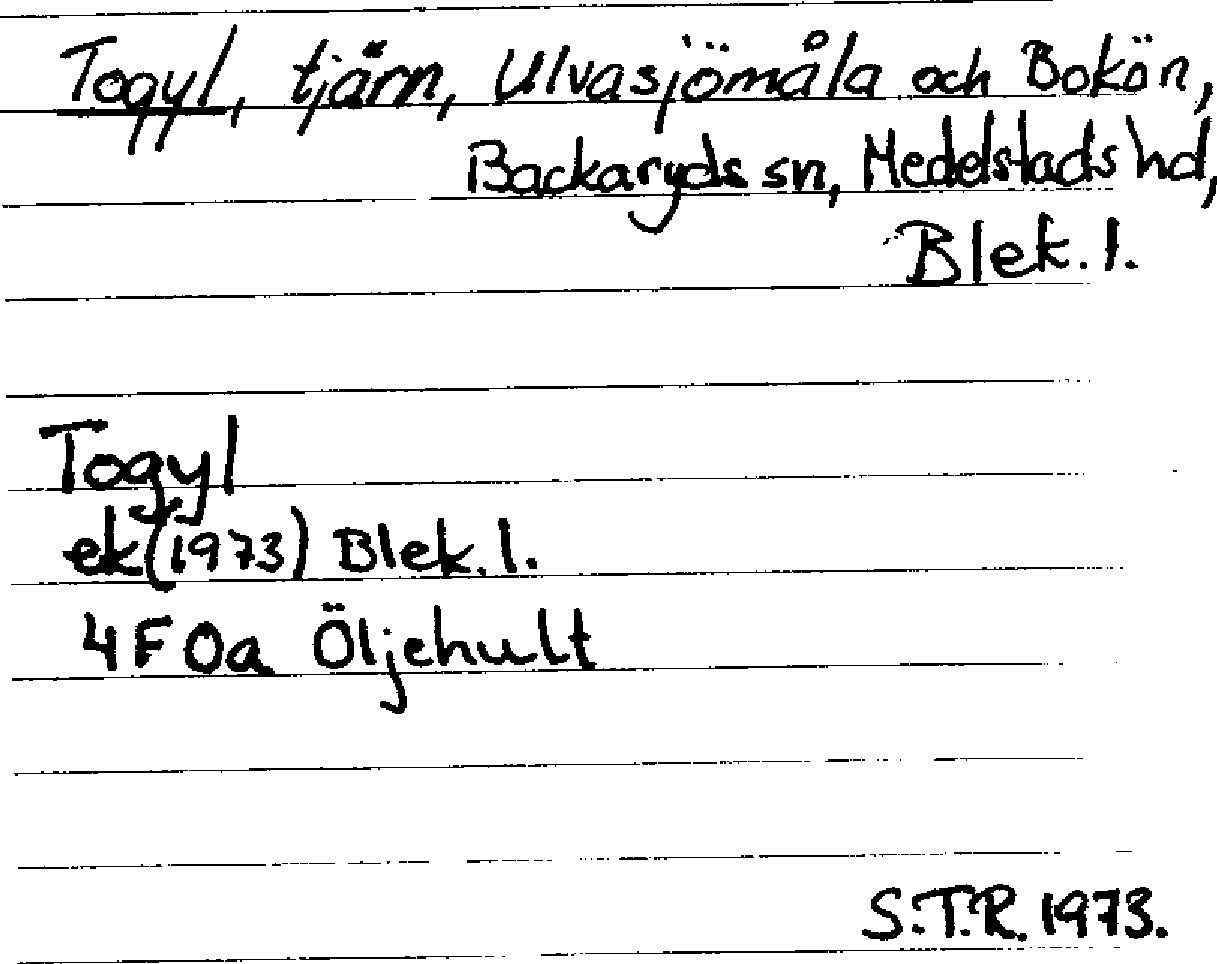 Togyl, tjärn, Ulvasjömåla och Bokön,
Backaryds sn, Medelstads hd,
Blek. l.
Togyl
ek (1973) Blek. l.
4F 0a Öljehult
S.T.R. 1973.